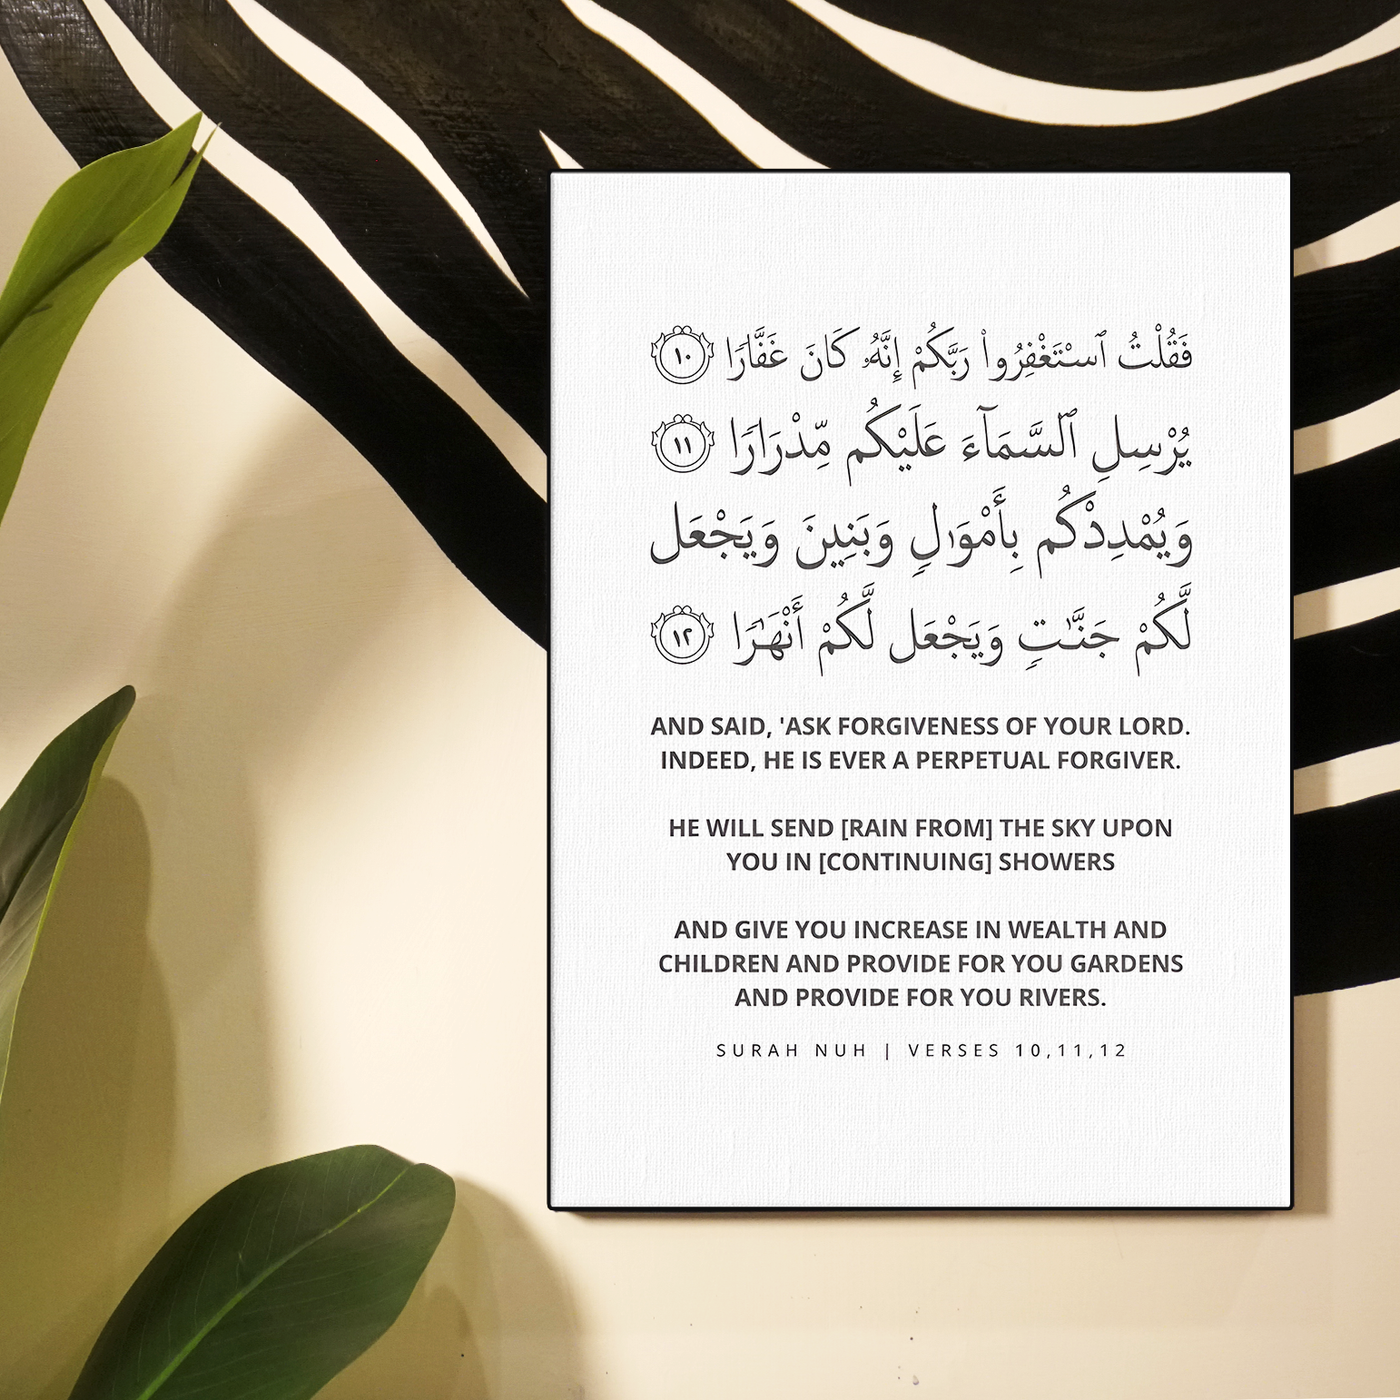 فَقُلْتُ ٱسْتَغْفِرُوا۟ رَبَّكُمْ إِنَّهُۥ كَانَ غَفَّارًا ١٠
يُرْسِلِ ٱلسَّمَآءَ عَلَيْكُم مِّدْرَارًا ١١
وَيُمْدِدْكُم بِأَمْوَٰلٍ وَبَنِينَ وَيَجْعَل
لَّكُمْ جَنَّٰتٍ وَيَجْعَل لَّكُمْ أَنْهَٰرًا ١٢
AND SAID, 'ASK FORGIVENESS OF YOUR LORD.
INDEED, HE IS EVER A PERPETUAL FORGIVER.
HE WILL SEND [RAIN FROM] THE SKY UPON
YOU IN [CONTINUING] SHOWERS
AND GIVE YOU INCREASE IN WEALTH AND
CHILDREN AND PROVIDE FOR YOU GARDENS
AND PROVIDE FOR YOU RIVERS.
SURAH NUH | VERSES 10,11,12